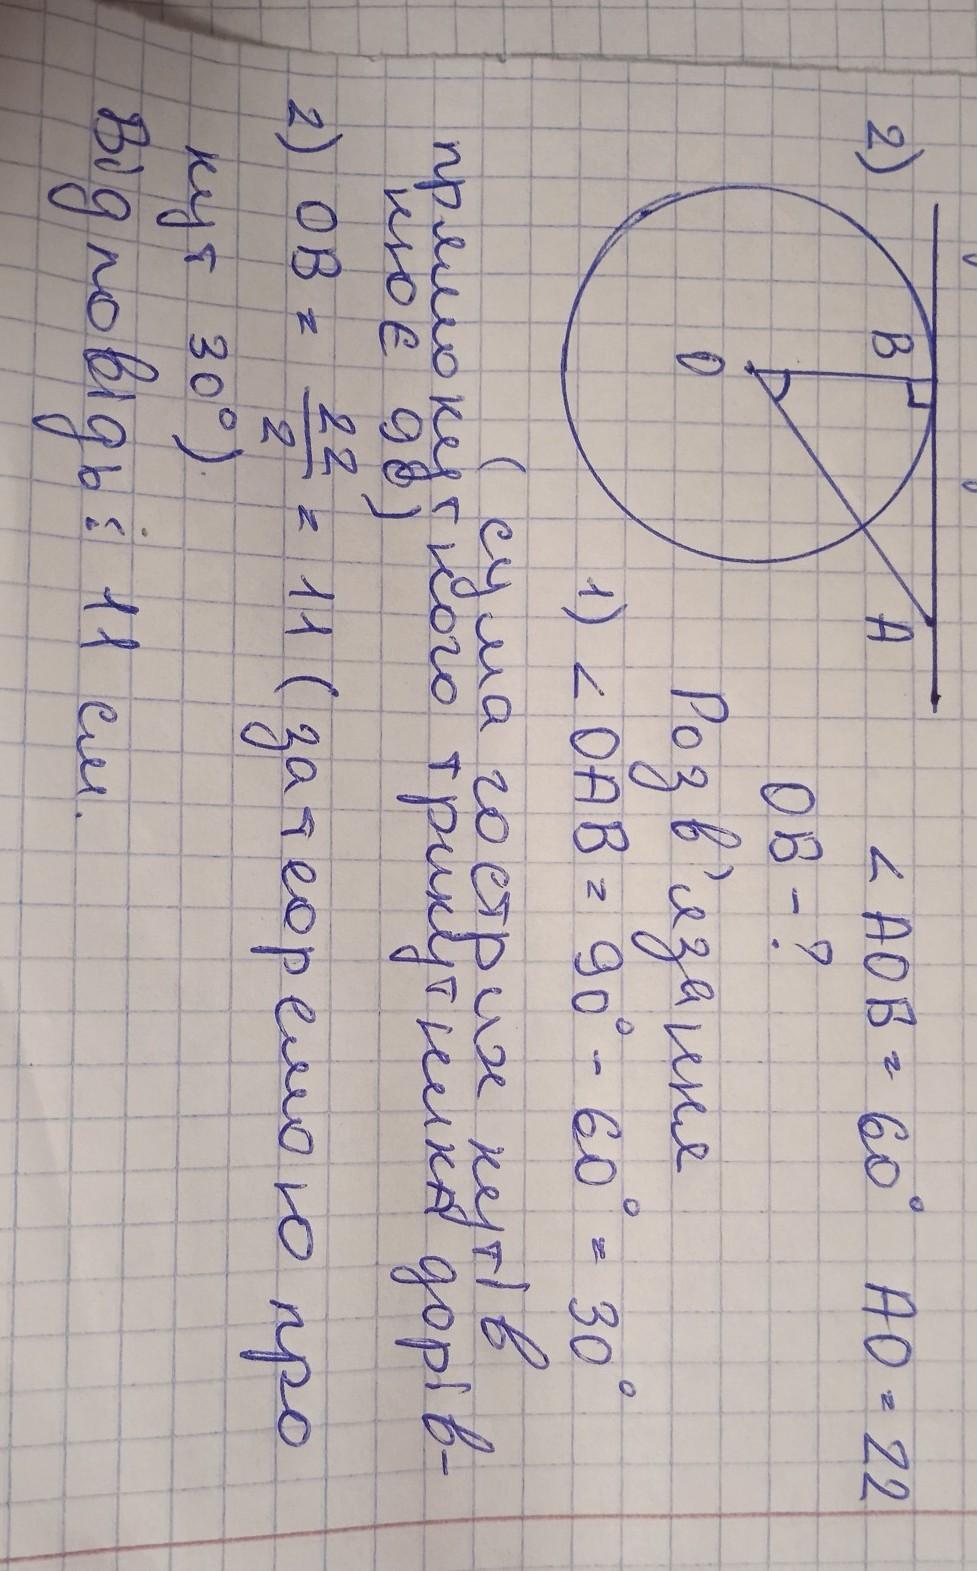 2)
B
A
O
∠AOB = 60° AO = 22
OB - ?
Розв'язання
1) ∠OAB = 90° - 60° = 30°
(сума гострих кутів
прямокутного трикутника дорів-
нює 90°)
2) OB = 22/2 = 11 (за теоремою про
кут 30°).
Відповідь: 11 см.